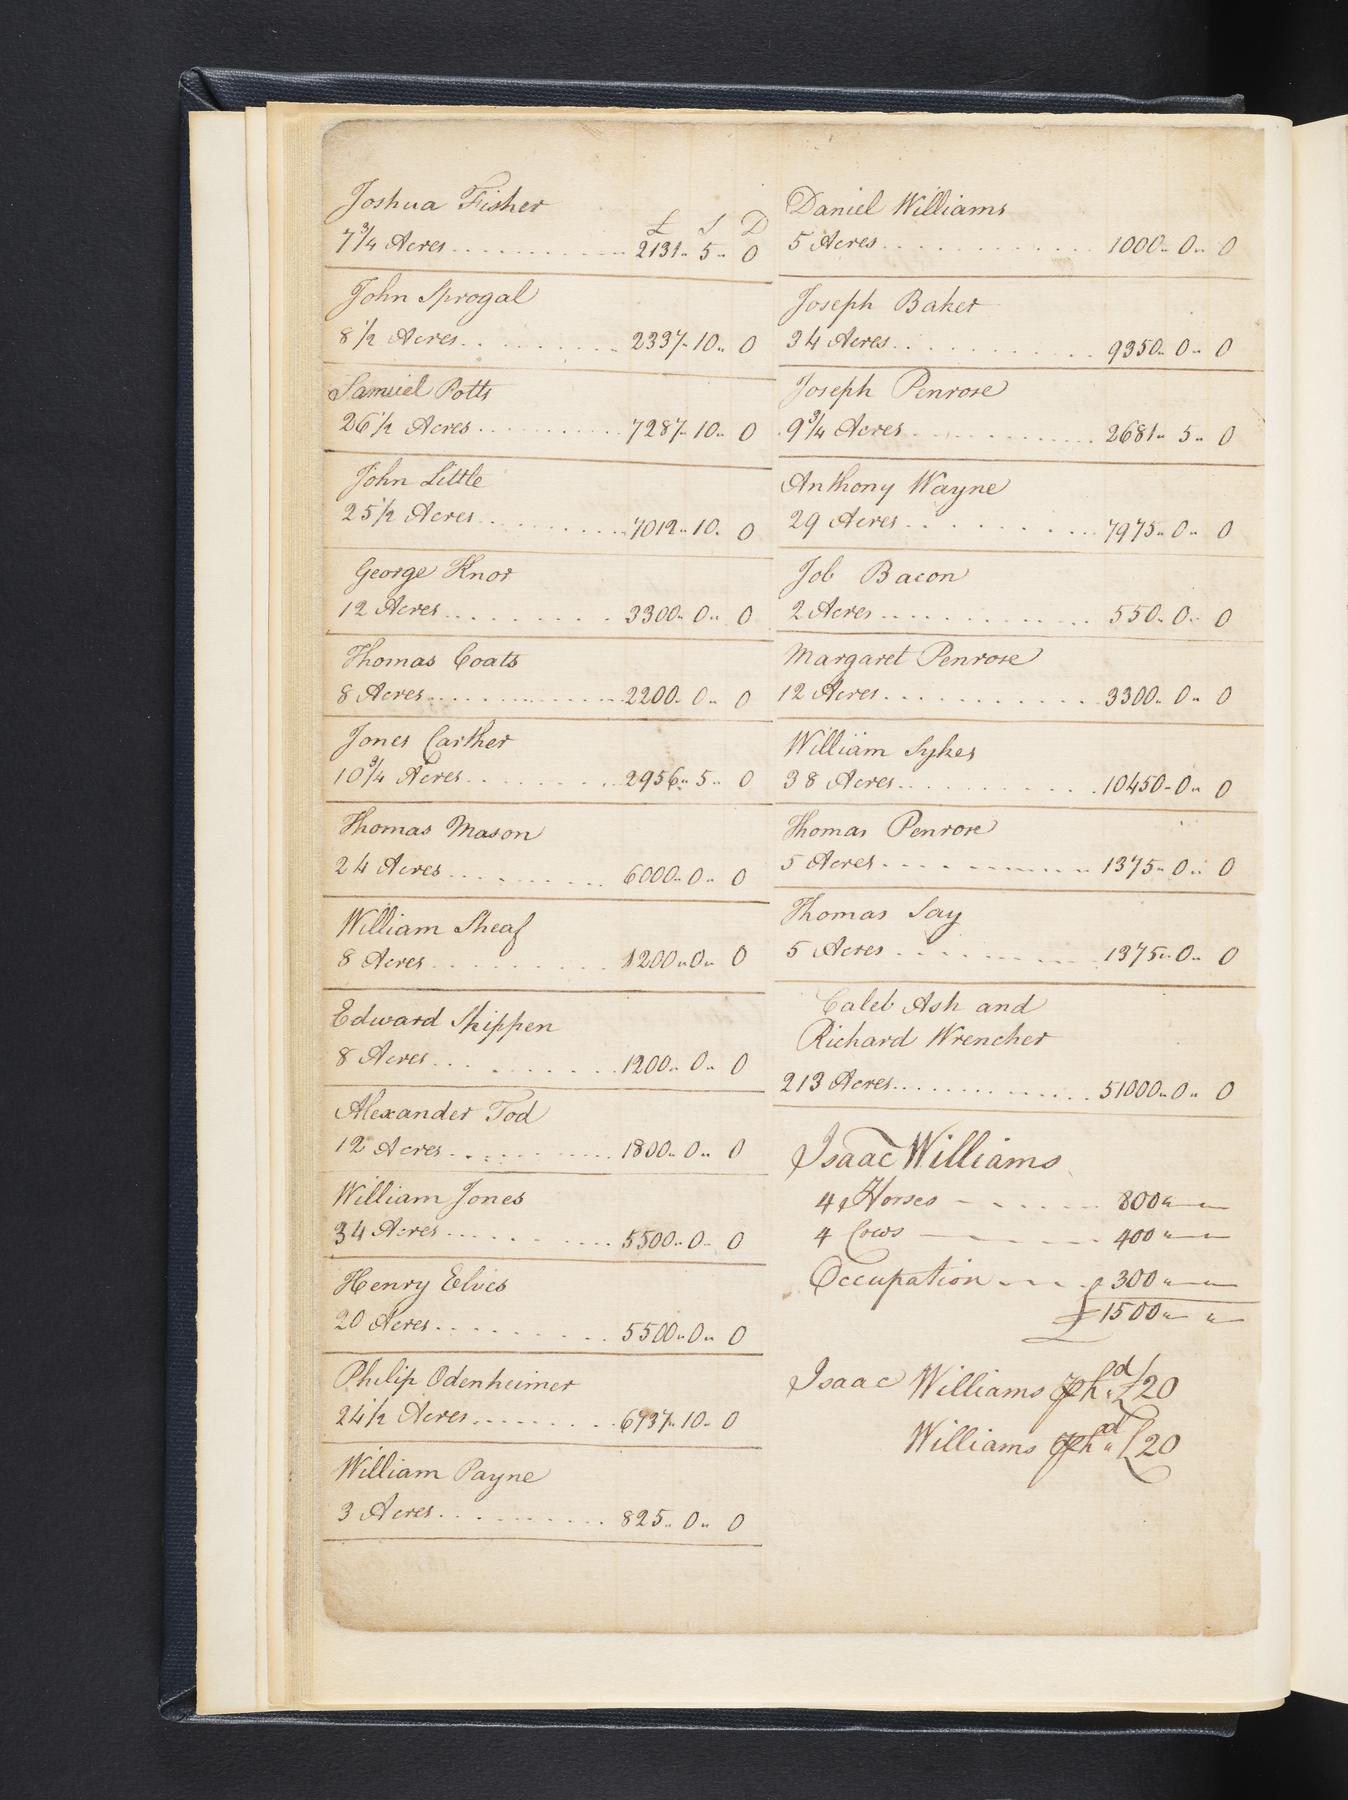 Joshua Fisher
£ S D
7 3/4 Acres . . . . . . . . . . 2131 .. 5 .. 0
John Sprogal
8 1/2 Acres . . . . . . . . . . 2337 .. 10 .. 0
Samuel Potts
26 1/2 Acres . . . . . . . . . . 7287 .. 10 .. 0
John Little
25 1/2 Acres . . . . . . . . . . 7012 .. 10 . 0
George Knor
12 Acres . . . . . . . . . . 3300 .. 0 .. 0
Thomas Coats
8 Acres . . . . . . . . . . 2200 .. 0 .. 0
Jones Carther
10 3/4 Acres . . . . . . . . . . 2956 .. 5 .. 0
Thomas Mason
24 Acres . . . . . . . . . . 6000 .. 0 .. 0
William Sheaf
8 Acres . . . . . . . . . . 1200 .. 0 .. 0
Edward Shippen
8 Acres . . . . . . . . . . 1200 .. 0 .. 0
Alexander Tod
12 Acres . . . . . . . . . . 1800 .. 0 .. 0
William Jones
34 Acres . . . . . . . . . . 5500 .. 0 .. 0
Henry Elves
20 Acres . . . . . . . . . . 5500 .. 0 .. 0
Philip Odenheimer
24 1/2 Acres . . . . . . . . . . 6737 .. 10 .. 0
William Payne
3 Acres . . . . . . . . . . 825 .. 0 .. 0
Daniel Williams
5 Acres . . . . . . . . . . 1000 .. 0 .. 0
Joseph Baker
34 Acres . . . . . . . . . . 9350 .. 0 .. 0
Joseph Penrose
9 3/4 Acres . . . . . . . . . . 2681 .. 5 .. 0
Anthony Wayne
29 Acres . . . . . . . . . . 7975 .. 0 .. 0
Job Bacon
2 Acres . . . . . . . . . . 550 .. 0 .. 0
Margaret Penrose
12 Acres . . . . . . . . . . 3300 .. 0 .. 0
William Sykes
38 Acres . . . . . . . . . . 10450 - 0 .. 0
Thomas Penrose
5 Acres . . . . . . . . . . 1375 .. 0 .. 0
Thomas Say
5 Acres . . . . . . . . . . 1375 .. 0 .. 0
Caleb Ash and
Richard Wrencher
213 Acres . . . . . . . . . . 51000 .. 0 .. 0
Isaac Williams
4 Horses - - - - - 800 " — " —
4 Cows — - - - - 400 " — " —
Occupation - - - - 300 " — " —
£ 1500 " — " —
Isaac Williams £20
Williams £20